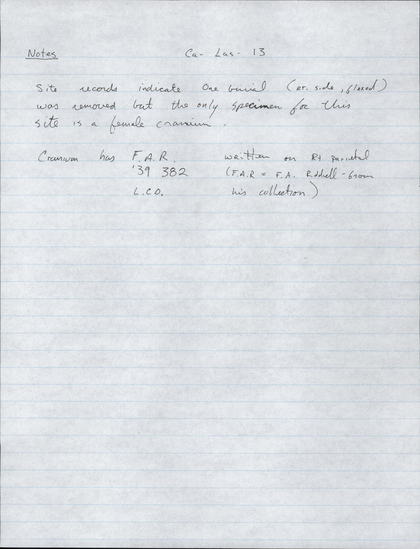 Notes Ca-Las-13
Site records indicate One burial (on side, flexed)
was removed but the only specimen for this
site is a female cranium.
Cranium has F.A.R. written on Rt parietal
'39 382 (F.A.R = F.A. Riddell - from
L.C.O. his collection)